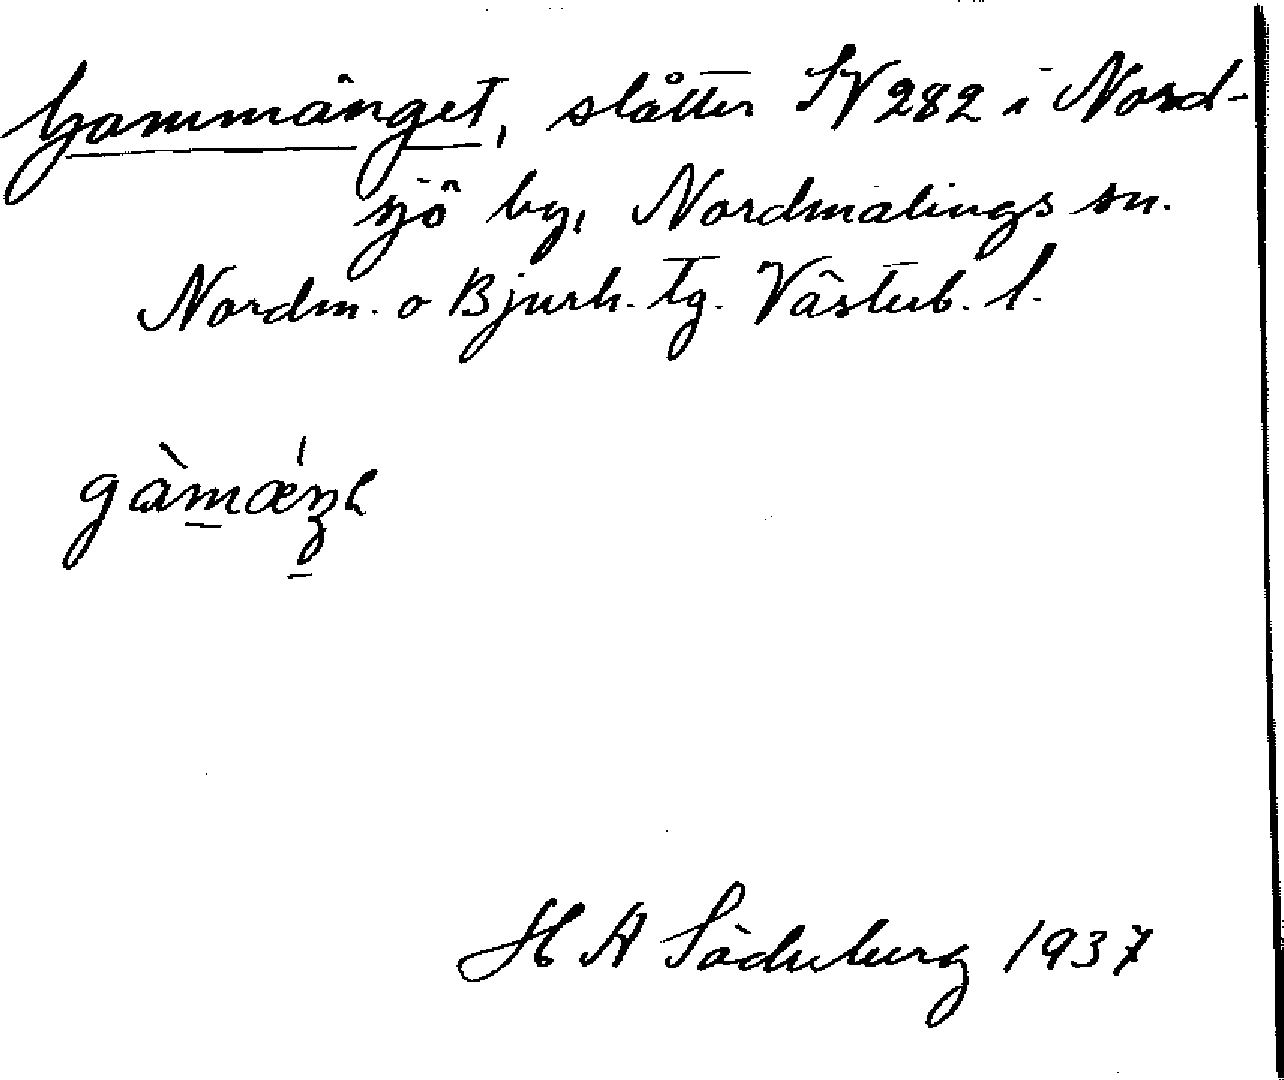 Gammänget, slåtter SV 282 i Nord-
sjö by, Nordmalings sn.
Nordm. o Bjurh. tg. Västerb. l.
H A Söderberg 1937